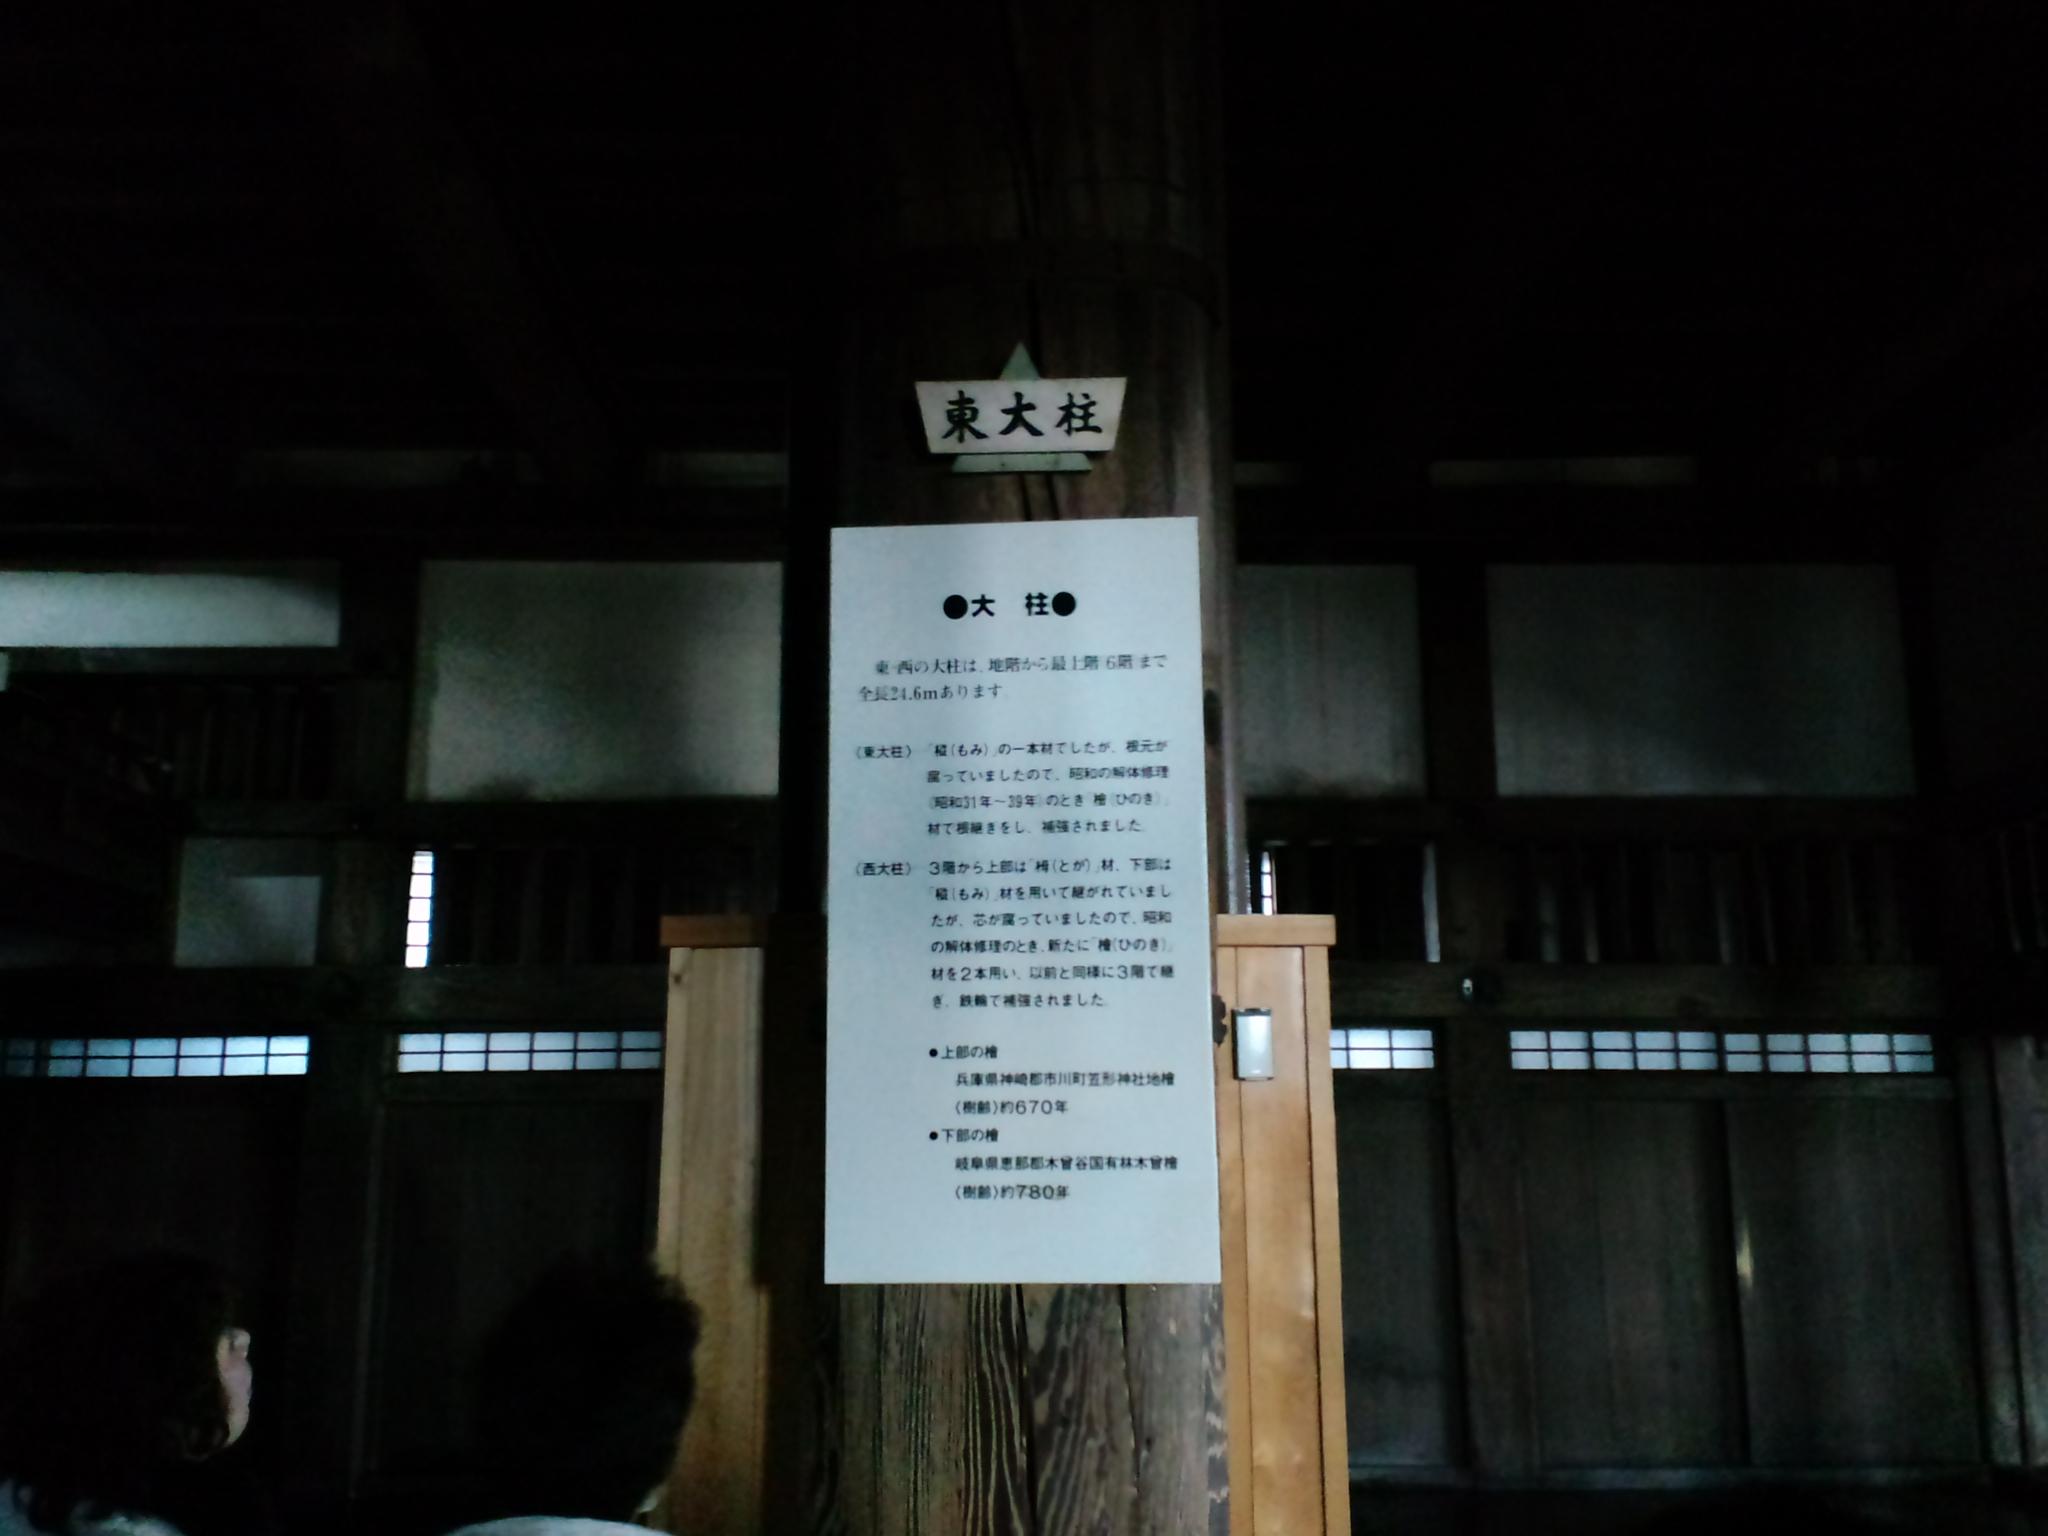 東大柱
●大 柱●
東・西の大柱は、地階から最上階(6階)まで
全長24.6mあります。
〈東大柱〉「樅(もみ)」の一本材でしたが、根元が
腐っていましたので、昭和の解体修理
(昭和31年～39年)のとき「檜(ひのき)」
材で根継ぎをし、補強されました。
〈西大柱〉3階から上部は「栂(とが)」材、下部は
「樅(もみ)」材を用いて継がれていまし
たが、芯が腐っていましたので、昭和
の解体修理のとき、新たに「檜(ひのき)」
材を2本用い、以前と同様に3階で継
ぎ、鉄輪で補強されました。
●上部の檜
兵庫県神崎郡市川町笠形神社地檜
〈樹齢〉約670年
●下部の檜
岐阜県恵那郡木曾谷国有林木曾檜
〈樹齢〉約780年